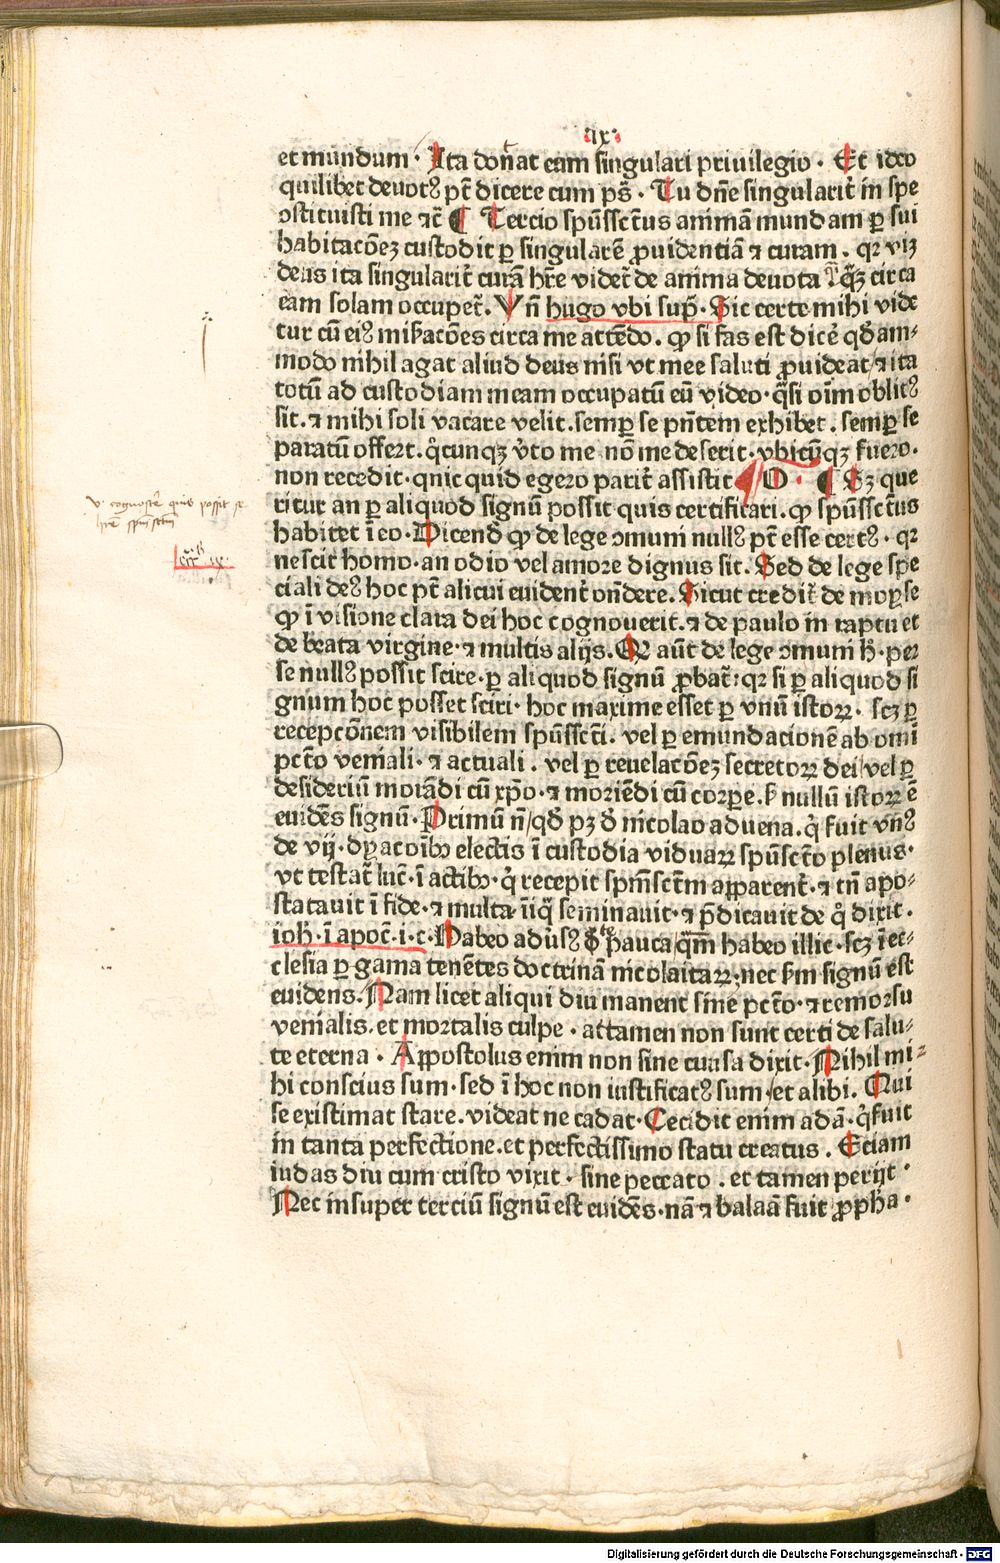 .ix.
et mundum. Ita don̄at eam singulari priuilegio. Et ideo
quilibet deuotꝰ pt̄ dicere cum ps̄. Tu dn̄e singularit̄ in spe
ↄstituisti me ⁊c̄ ¶ Tercio spūssctūs animā mundam ꝑ sui
habitacōeꝫ custodit ꝑ singularē ꝓuidentiā ⁊ curam. qꝛ viꝫ
deus ita singularit̄ curā hr̄e videt̄ de anima deuota qꝫ circa
eam solam occupet̄. Vn̄ hugo vbi sup̄. Sic certe mihi vide
tur cū eiꝰ mis̄acōes circa me attēdo. ꝙ si fas est dicē qđ am⸗
modo nihil agat aliud deus nisi vt mee saluti ꝓuideat/ ⁊ ita
totū ad custodiam meam occupatū eū video. q̄si oīm oblitꝰ
sit. ⁊ mihi soli vacare velit. semꝑ se pn̄tem exhibet. semꝑ se
paratū offert. q̊cunqꝫ v̄to me nō me deserit. vbicūqꝫ fuero.
non recedit. quicquid egero parit̄ assistit ¶ O. ¶ Sꝫ que
ritur an ꝑ aliquod signū possit quis certificari. ꝙ spūssctūs
habitet ī eo. Dicend̄ ꝙ de lege ↄmuni nullꝰ pt̄ esse certꝰ. qꝛ
nescit homo. an odio vel amore dignus sit. Sed de lege spe
ciali deꝰ hoc pt̄ alicui euident̄ on̄dere. Sicut credit̄ de moyse
ꝙ ī visione clara dei hoc cognouerit. ⁊ de paulo in raptu et
de beata virgine. ⁊ multis alijs. Qꝛ aūt de lege ↄmuni h̄. per
se nullꝰ possit scire. ꝑ aliquod signū ꝓbat̄: qꝛ si ꝑ aliquod si
gnum hoc posset sciri. hoc maxime esset ꝑ vnū istoꝝ. scꝫ ꝑ
recepcōnem visibilem spūsscti̅. vel ꝑ emundacionē ab omī
pctō veniali. ⁊ actuali. vel ꝑ reuelacōeꝫ secretoꝝ dei/ vel ꝑ
desideriū morādi cū xp̄o. ⁊ moriēdi cū corpore. s̄ nullū istoꝝ ē
euidēs signū. Primū n̄/ qđ pꝫ đ nicolao aduena. q̇ fuit vnꝰ
de vij. dyaconibꝫ electis ī custodia viduaꝝ spūsctō plenus.
vt testat̄ luc̄. ī actibꝫ. q̇ recepit spm̄sctm̄ apparent̄. ⁊ tn̄ apo⸗
statauit ī fide. ⁊ multa iniq̄ seminauit. ⁊ p̄dicauit de q̊ dixit.
ioh̄. ī apoc̄. i. c̄. Habeo aduſꝰ te pauca/ qm̄ habeo illic. scꝫ ī ec⸗
clesia ꝑgama tenētes doctrinā nicolaitaꝝ; nec s̄m signū est
euidens. Nam licet aliqui diu manent sine pctō. ⁊ remorsu
venialis. et mortalis culpe. attamen non sunt certi de salu⸗
te eterna. Appostolus enim non sine cuasa dixit. Nihil mi⸗
hi conscius sum. sed ī hoc non iustificatꝰ sum/ et alibi. Qui
se existimat stare. videat ne cadat. Cecidit enim adā. q̇ fuit
in tanta perfectione. et perfectissimo statu creatus. Eciam
iudas diu cum cristo vixit. sine peccato. et tamen perijt.
Nec insuper terciū signū est euidēs. nā ⁊ balaā fuit ꝓpha.
Digitalisierung gefördert durch die Deutsche Forschungsgemeinschaft - DFG